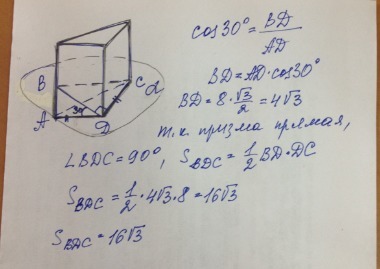 cos30° = BD/AD
BD = AD · cos30°
BD = 8 · √3/2 = 4√3
т.к. призма прямая,
∠BDC = 90°, S_BDC = 1/2 BD · DC
S_BDC = 1/2 · 4√3 · 8 = 16√3
S_BDC = 16√3
B
C
α
A
30°
D